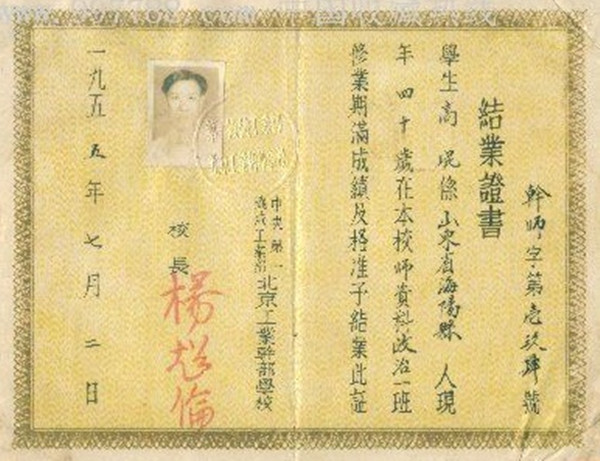 結業證書
幹師字第壹玖號
學生高 琨係山東省海陽縣 人現
年四十歲在本校師資科政治一班
修業期滿成績及格准予結業此証
中央第一
機械工業部
北京工業幹部學校
校長
楊 倫
一九五五年七月二日